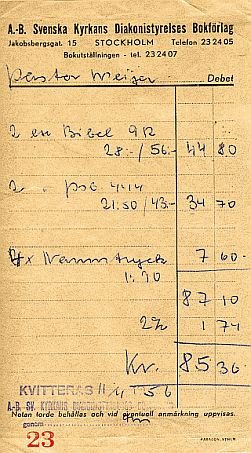 A.-B. Svenska Kyrkans Diakonistyrelses Bokförlag
Jakobsbergsgat. 15 STOCKHOLM Telefon 23 24 05
Bokutställningen - tel. 23 24 07
Pastor Meijer Debet
2 ex Bibel 912
28:-/56:- 44 80
2 " psb 4414
21:50/43:- 34 70
Namntryck
1:90 7 60
87 10
2% 1 74
Kr. 85 36
KVITTERAS 11/4 1956
A.-B. SV. KYRKANS
Notan torde behållas och vid eventuell anmärkning uppvisas.
genom
23